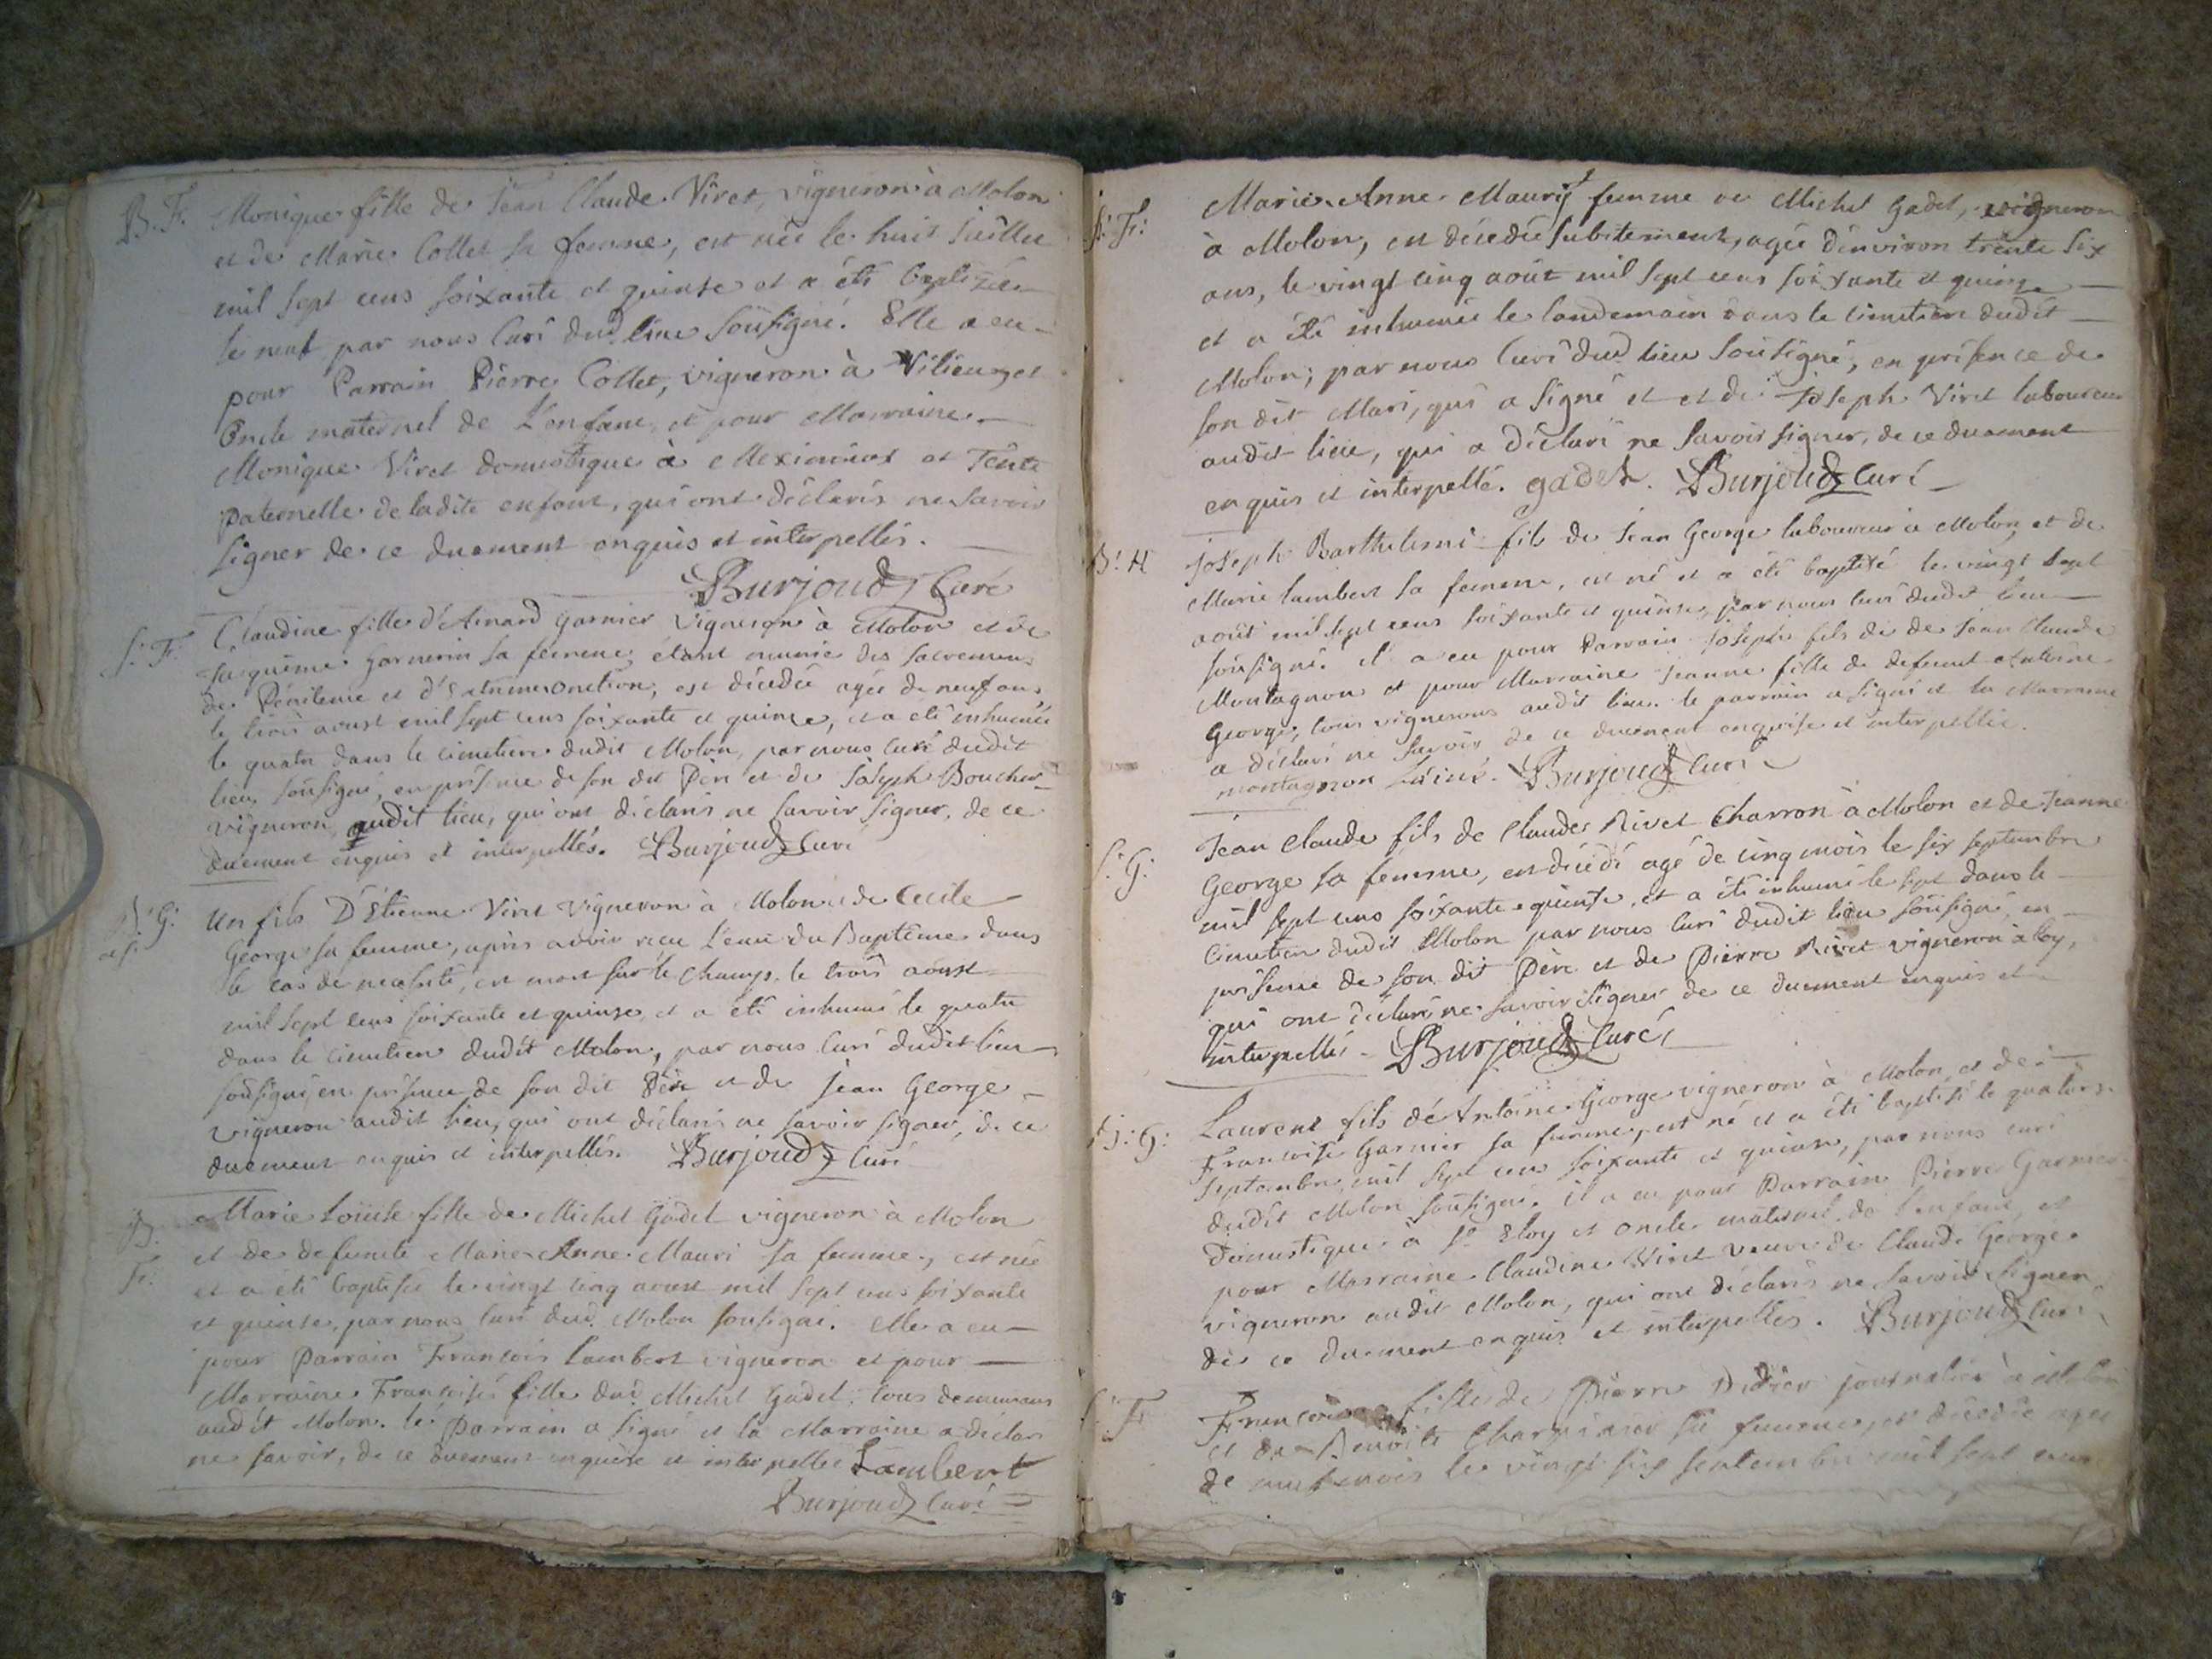 B. F. Monique fille de Jean Claude Viret, vigneron à Molon
et de Marie Collet sa femme, est née le huit Juillet
mil sept cens soixante et quinse et a été baptisée
le neuf par nous Curé dud. lieu soûsigné. Elle a eu
pour Parrain Pierre Collet, vigneron à Vilieux et
Oncle maternel de L'enfant, et pour Marraine
Monique Viret domestique à Meximieux et Tente
paternelle de ladite enfant, qui ont déclarés ne savoir
signer de ce duement enquis et interpellés.
Burjoud Curé
S. F. Claudine fille d'Aimard Garnier Vigneron à Molon et de
Garnerin sa femme, étant munie des sacremens
de Pénitence et d'Extrême onction, est décédée agée de neuf ans
le trois aoust mil sept cens soixante et quinze, et a été inhumée
le quatre dans le cimetiere dudit Molon, par nous Curé dudit
lieu soûsigné, en présence de son dit Pere et de Joseph Boucher
vigneron audit lieu, qui ont déclarés ne savoir signer, de ce
duement enquis et interpellés. Burjoud Curé
G: Un fils D'Etienne Viret Vigneron à Molon et de Cecile
George sa femme, après avoir recu l'eau du Baptême dans
le cas de necessité, est mort sur le champ le trois aoust
mil sept cens soixante et quinse, et a été inhumé le quatre
dans le cimetiere dudit Molon, par nous Curé dudit lieu
soûsigné, en présence de son dit Père et de Jean George
vigneron audit lieu, qui ont déclarés ne savoir signer, de ce
duement enquis et interpellés. Burjoud Curé
B. Marie Louise fille de Michel Gadet vigneron à Molon
et de defunte Marie Anne Mauri sa femme, est née
F. et a été baptisée le vingt cinq aoust mil sept cens soixante
et quinse, par nous Curé dud. Molon soûsigné. Elle a eu
pour Parrain François Lambert vigneron et pour
Marraine Françoise fille dud. Michel Gadet, tous demeurans
audit Molon. le Parrain a signé et la Marraine a déclaré
ne savoir, de ce duement enquise et interpellée Lambert
Burjoud Curé
S: F: Marie Anne Maury femme de Michel Gadet, vigneron
à Molon, est décédée subitement, agée d'environ trente six
ans, le vingt cinq août mil sept cens soixante et quinze
et a été inhumée le landemain dans le cimetiere dudit
Molon, par nous Curé dud lieu soûsigné, en présence de
son dit Mari, qui a signé et et de Joseph Viret laboureur
audit lieu, qui a déclaré ne savoir signer, de ce duement
enquis et interpellé. gadet. Burjoud Curé
B: Joseph Barthelemi fils de Jean George laboureur à Molon, et de
Marie Lambert sa femme, est né et a été baptisé le vingt sept
août mil sept cens soixante et quinse, par nous Curé dudit lieu
soûsigné. il a eu pour Parrain Joseph fils de de Jean Claude
Montagnon et pour Marraine Jeanne fille de defunt Antoine
George, tous vignerons audit lieu. le parrain a signé et la Marraine
a déclaré ne savoir de ce duement enquise et interpellée.
montagnon Burjoud Curé
S: G: Jean Claude fils de Claude Rivet Charron à Molon et de Jeanne
George sa femme, est décédé agé de cinq mois le six septembre
mil sept cens soixante quinse, et a été inhumé le sept dans le
cimetiere dudit Molon par nous Curé dudit lieu soûsigné, en
présence de son dit Père et de Pierre Rivet vigneron à Loy,
qui ont déclaré ne savoir signer de ce duement enquis et
interpellés. Burjoud Curé
B: G: Laurent fils d'Antoine George vigneron à Molon, et de
Françoise Garnier sa femme, est né et a été baptisé le quatorse
septembre, mil sept cens soixante et quinse, par nous curé
dudit Molon soûsigné. il a eu pour Parrain Pierre Garnier
Domestique à St Eloy et oncle maternel de l'enfant, et
pour Marraine Claudine Viret veuve de Claude George
vigneron audit Molon, qui ont déclarés ne savoir signer
de ce duement enquis et interpellés. Burjoud Curé
S: F. Françoise fille de Pierre Didier journalier à Molon
et de Benoite sa femme, est décédée agée
de neuf mois le vingt six septembre mil sept cens